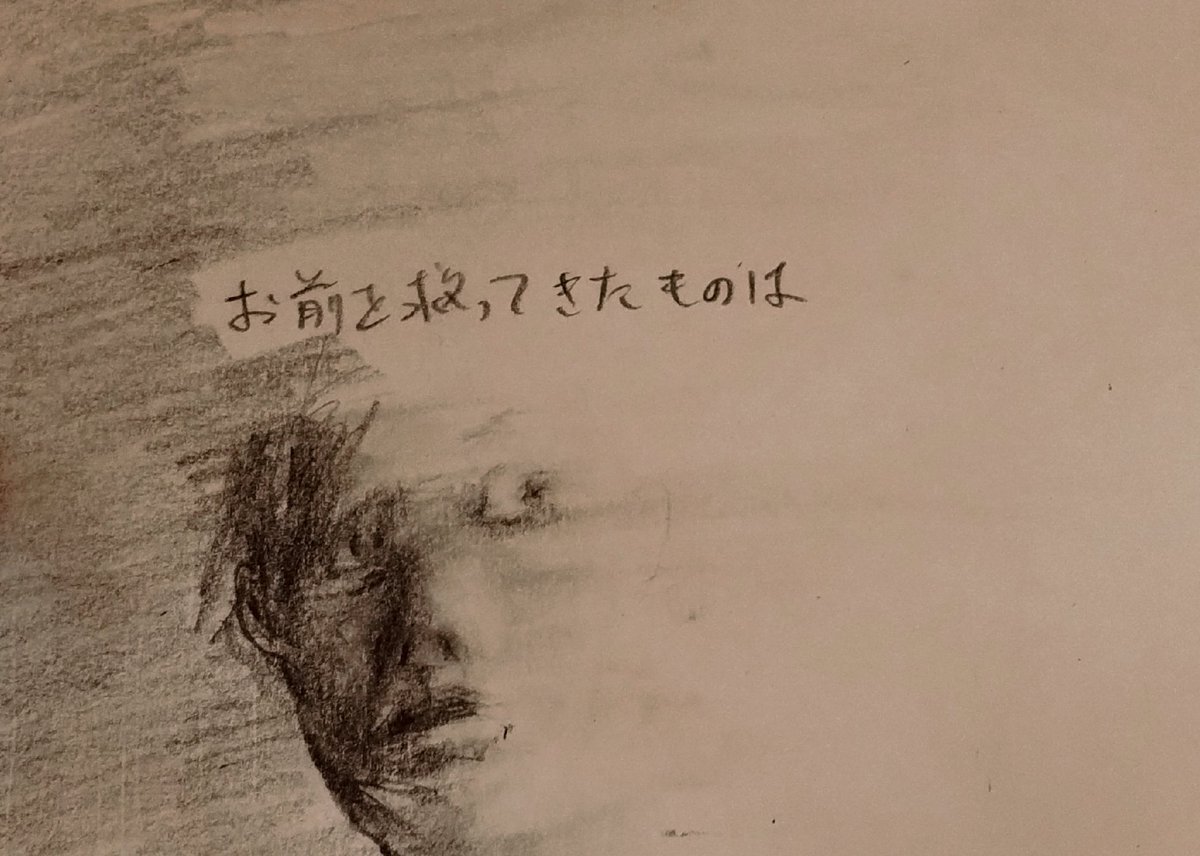 お前を救ってきたものは